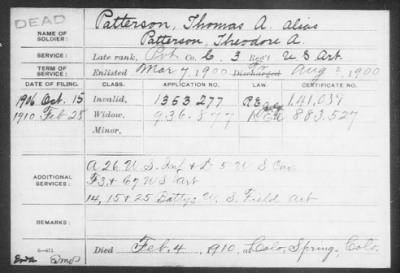 DEAD
NAME OF SOLDIER: Patterson, Thomas A. alias
Patterson, Theodore A.
SERVICE: Late rank, Pvt Co. 6, 3 Reg't U S Art.
Enlisted Mar 7, 1900 Discharged Aug 3, 1900
DATE OF FILING. CLASS. APPLICATION NO. LAW CERTIFICATE NO.
1906 Oct. 15 Invalid, 1353277 1,141,039
1910 Feb 28 Widow, 936.877 883,527
Minor,
ADDITIONAL SERVICES: A 26 U.S. Inf & L 5 U S Cav
F 3 & 67 U S Art
14, 15 & 25 Battys U. S. Field Art
REMARKS:
6-472
Died Feb. 4, 1910, at Colo. Springs, Colo.